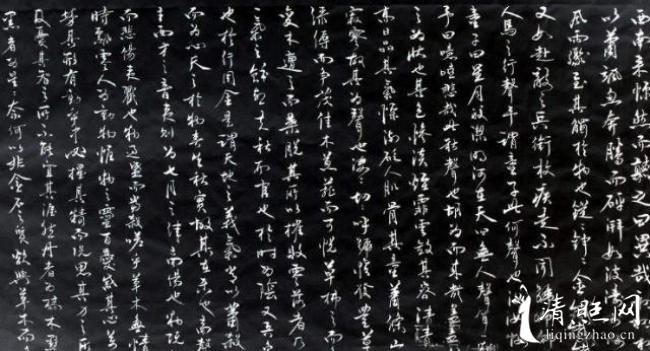 西南来悚然而聽之曰異哉初
以蕭颯忽奔騰而砰湃如波濤
風雨驟至其觸於物也鏦錚金鐵
又如赴敵之兵銜枚疾走不聞
人馬之行聲予謂童子此何聲也汝
童子曰星月皎潔明河在天四無人聲聲
予曰噫嘻悲哉此秋聲也胡為而來哉盖
之為狀也其色慘淡煙霏雲斂其容清
日晶其氣慄冽砭人肌骨其意蕭條山
寂寥故其為聲也淒切呼號憤發豐草
綠縟而争茂佳木葱蘢而可悅草拂之而
變木遭之而葉脫其所以摧敗零落者乃
一氣之餘烈夫秋刑官也於時為陰又兵
也於行用金是謂天地之義氣常以肅殺
而為心天之於物春生秋實故其在樂也商聲
主西方之音夷則為七月之律商傷也物既
而悲傷夷戮也物過盛而當殺嗟乎草木無情
時飄零人為動物惟物之靈百憂感其心萬
其形有動乎中必搖其精而況思其力之所
及憂其智之所不能宜其渥然丹者為槁木黟
黑者為星奈何以非金石之質欲與草木而
清旺网
liqingzhao.cn